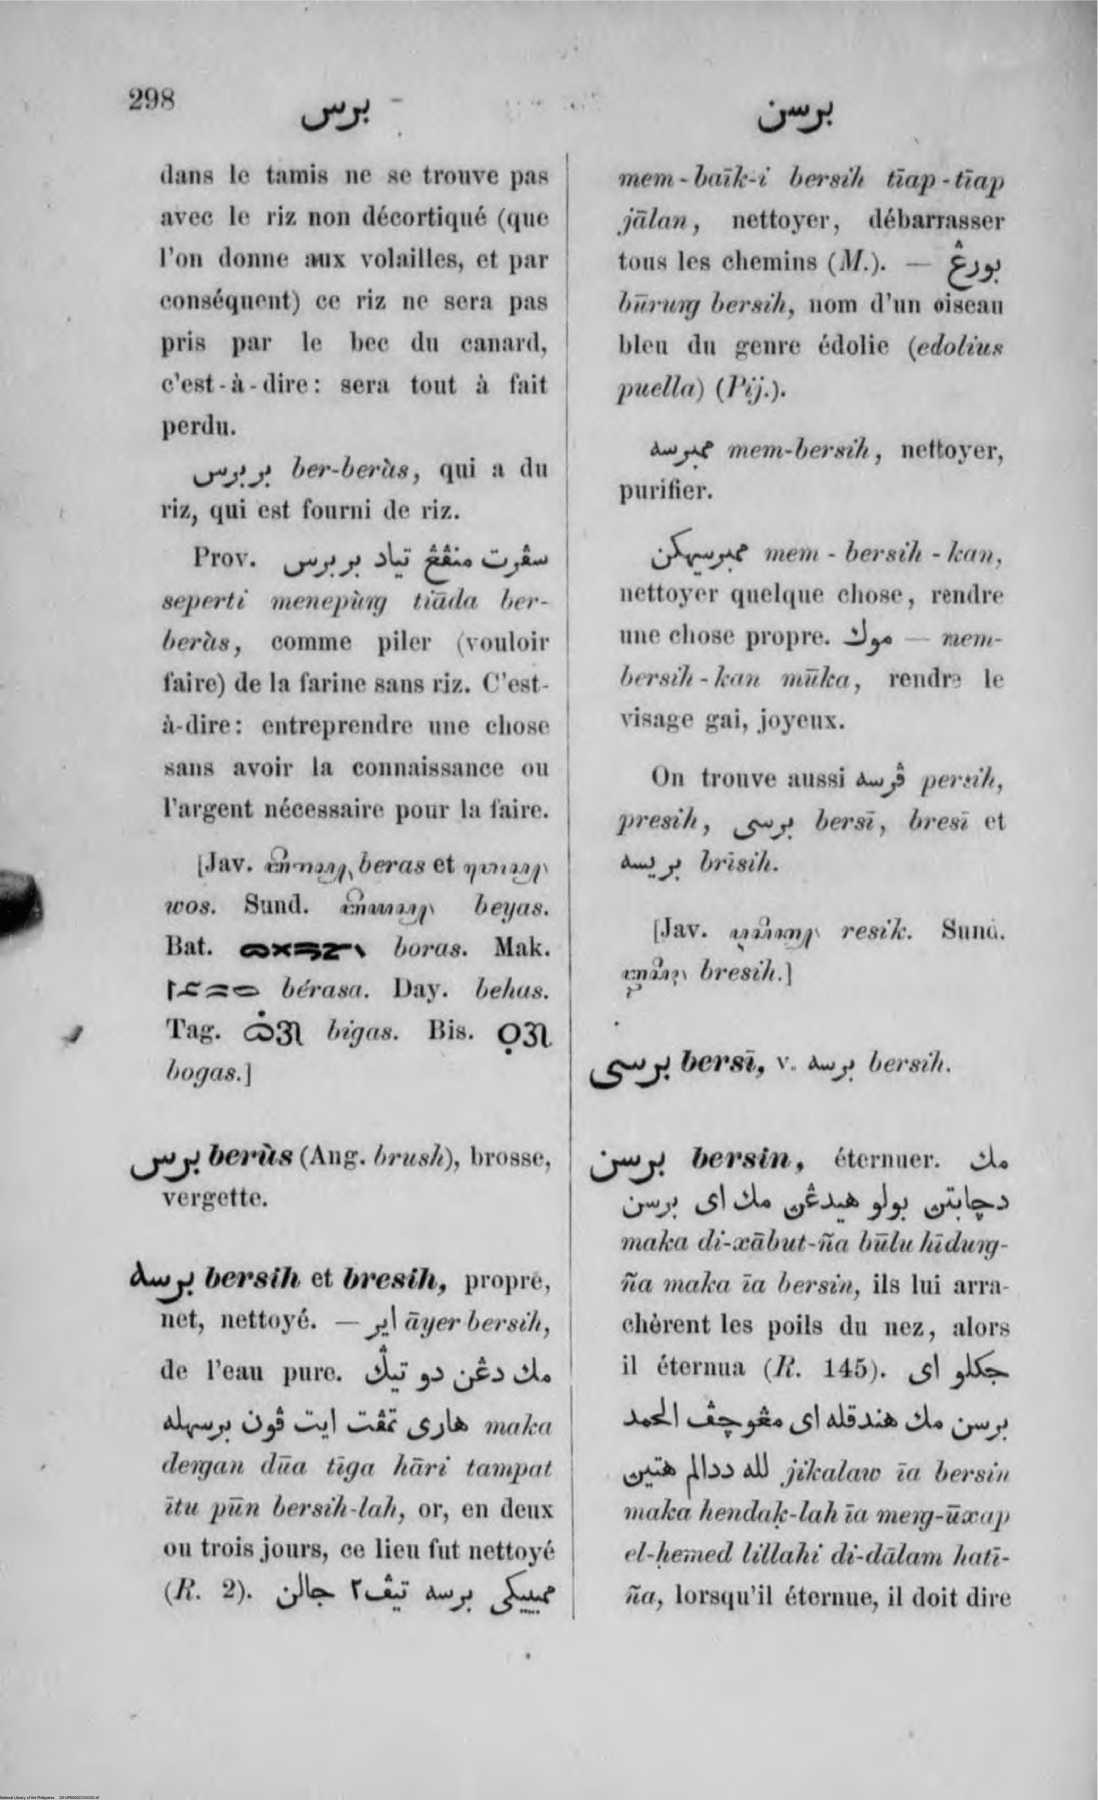 298
برس
برسن
dans le tamis ne se trouve pas
avec le riz non décortiqué (que
l'on donne aux volailles, et par
conséquent) ce riz ne sera pas
pris par le bec du canard,
c'est-à-dire: sera tout à fait
perdu.
بر برس ber-beràs, qui a du
riz, qui est fourni de riz.
Prov. سڤرت منڤڠ تياد بر برس
seperti menepùng tiāda ber-
beràs, comme piler (vouloir
faire) de la farine sans riz. C'est-
à-dire: entreprendre une chose
sans avoir la connaissance ou
l'argent nécessaire pour la faire.
[Jav. beras et
wos. Sund. beyas.
Bat. boras. Mak.
bérasa. Day. behas.
Tag. bigas. Bis.
bogas.]
برس berùs (Ang. brush), brosse,
vergette.
برسه bersih et bresih, propre,
net, nettoyé. — اير āyer bersih,
de l'eau pure. مك دڠن دو تيݢ
هاري تمڤت ايت ڤون برسهله maka
dengan dūa tīga hāri tampat
ītu pūn bersih-lah, or, en deux
ou trois jours, ce lieu fut nettoyé
(R. 2). ممبيكي برسه تيڤ٢ جالن
mem-baīk-i bersih tīap-tīap
jālan, nettoyer, débarrasser
tous les chemins (M.). — بورڠ
būrung bersih, nom d'un oiseau
bleu du genre édolie (edolius
puella) (Pij.).
ممبرسه mem-bersih, nettoyer,
purifier.
ممبرسيهكن mem-bersih-kan,
nettoyer quelque chose, rendre
une chose propre. موك — mem-
bersih-kan mūka, rendre le
visage gai, joyeux.
On trouve aussi ڤرسه persih,
presih, برسي bersī, bresī et
بريسه brīsih.
[Jav. resik. Sund.
bresih.]
برسي bersī, v. برسه bersih.
برسن bersin, éternuer. مك
دچابتن بولو هيدڠن مك اي برسن
maka di-xābut-ña būlu hīdung-
ña maka īa bersin, ils lui arra-
chèrent les poils du nez, alors
il éternua (R. 145). جكلو اي
برسن مك هندقله اي مڠوچڤ الحمد
لله ددالم هتين jikalaw īa bersin
maka hendaḳ-lah īa meng-ūxap
el-ḥemed lillahi di-dālam hatī-
ña, lorsqu'il éternue, il doit dire